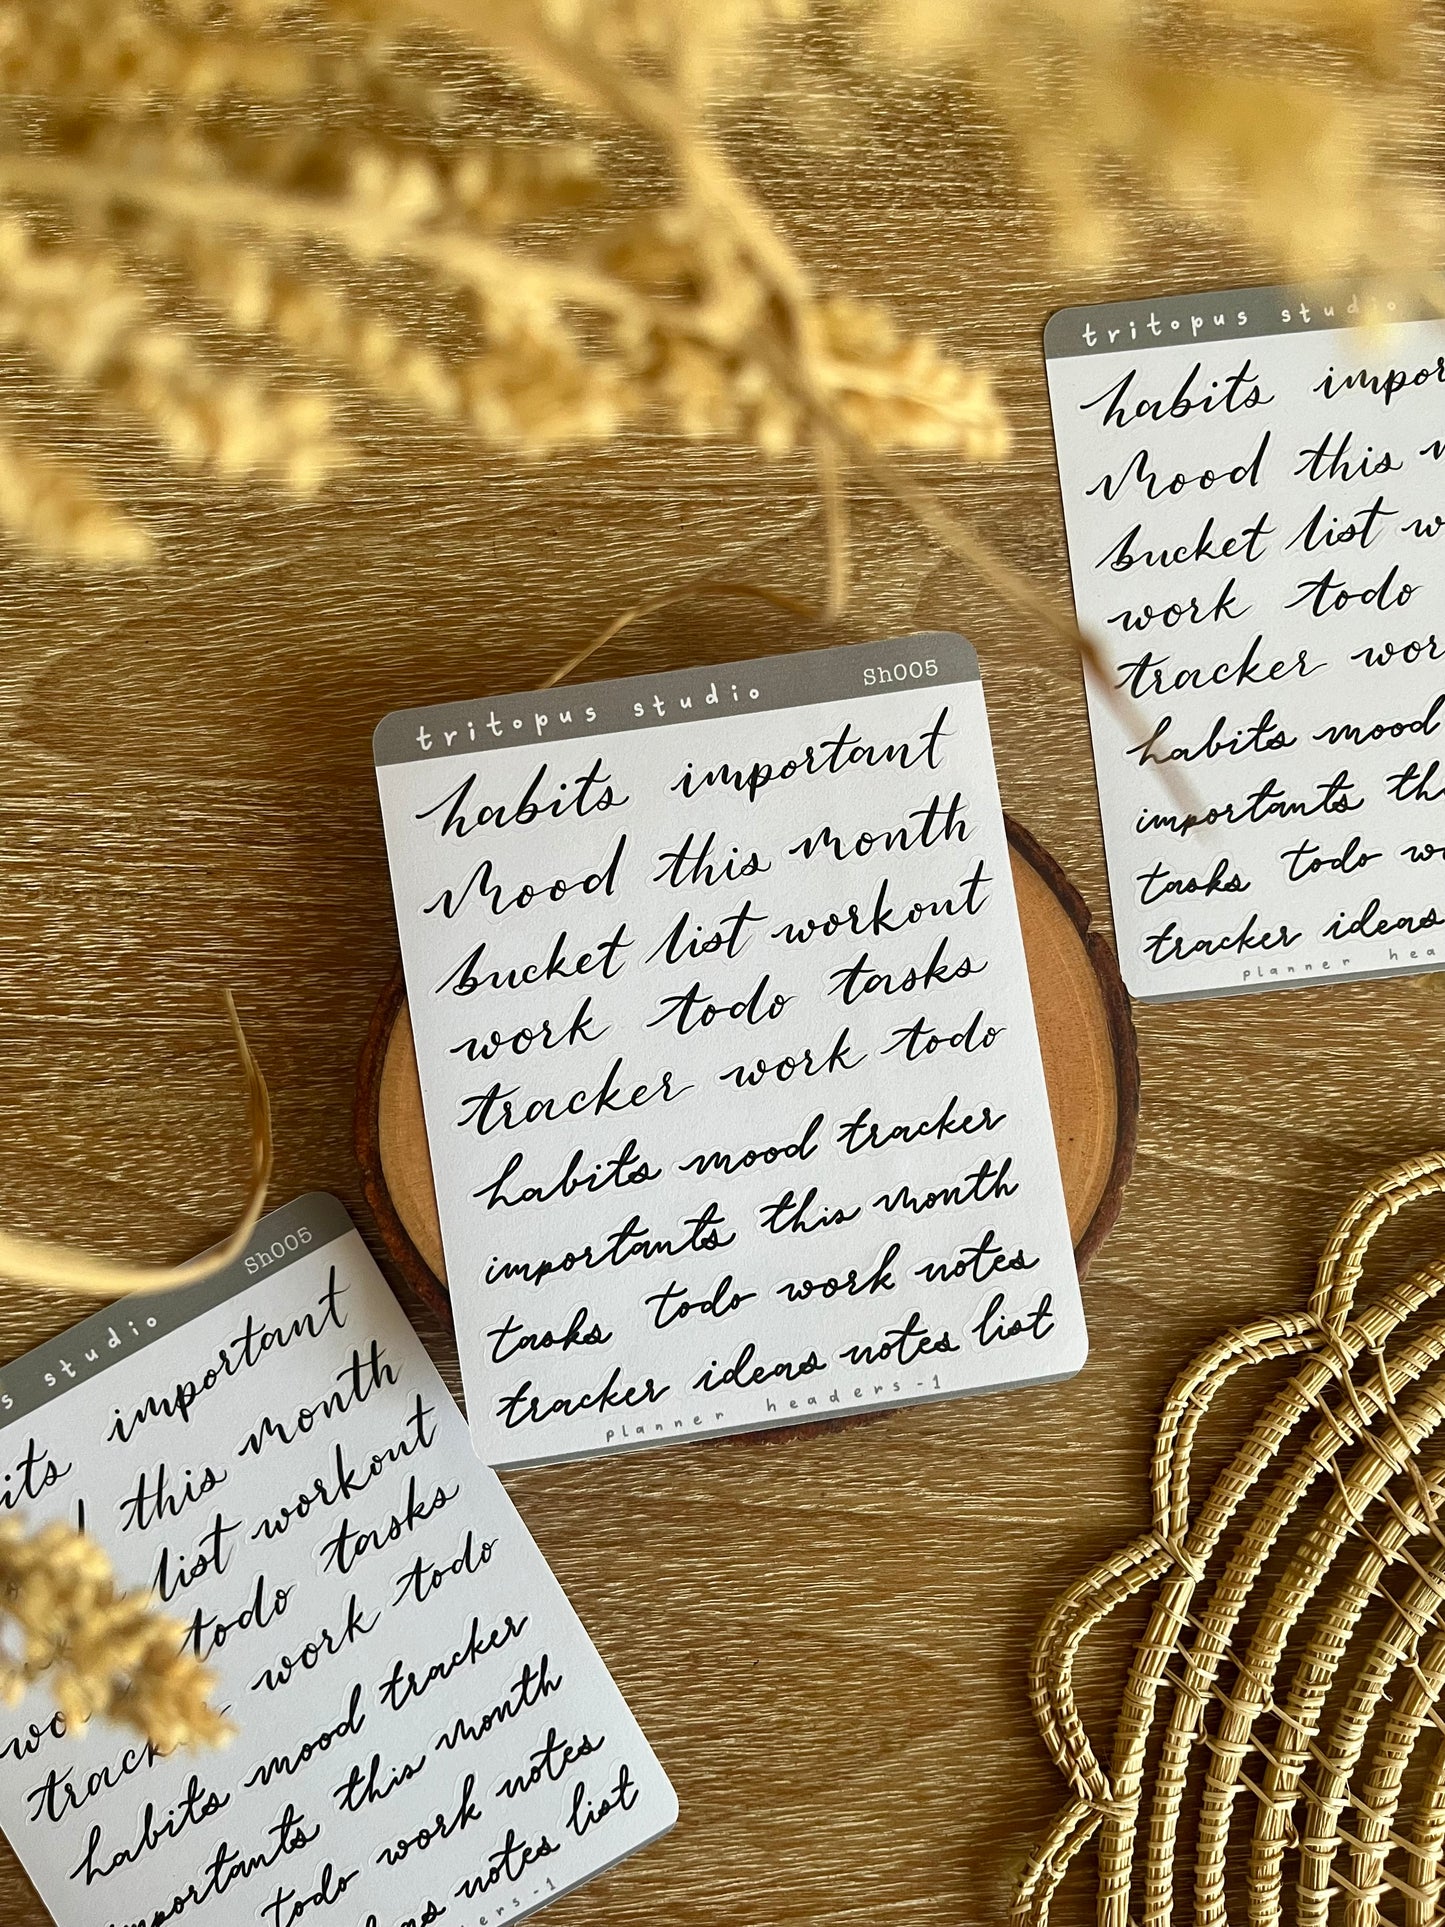 tritopus studio Sh005
habits important
mood this month
bucket list workout
work todo tasks
tracker work todo
habits mood tracker
importants this month
tasks todo work notes
tracker ideas notes list
planner headers-1
tritopus studio
habits
mood this
bucket list
work todo
tracker
habits mood
importants
tasks todo
tracker ideas
planner
studio Sh005
important
this month
list workout
todo tasks
work todo
habits mood tracker
importants this month
todo work notes
notes list